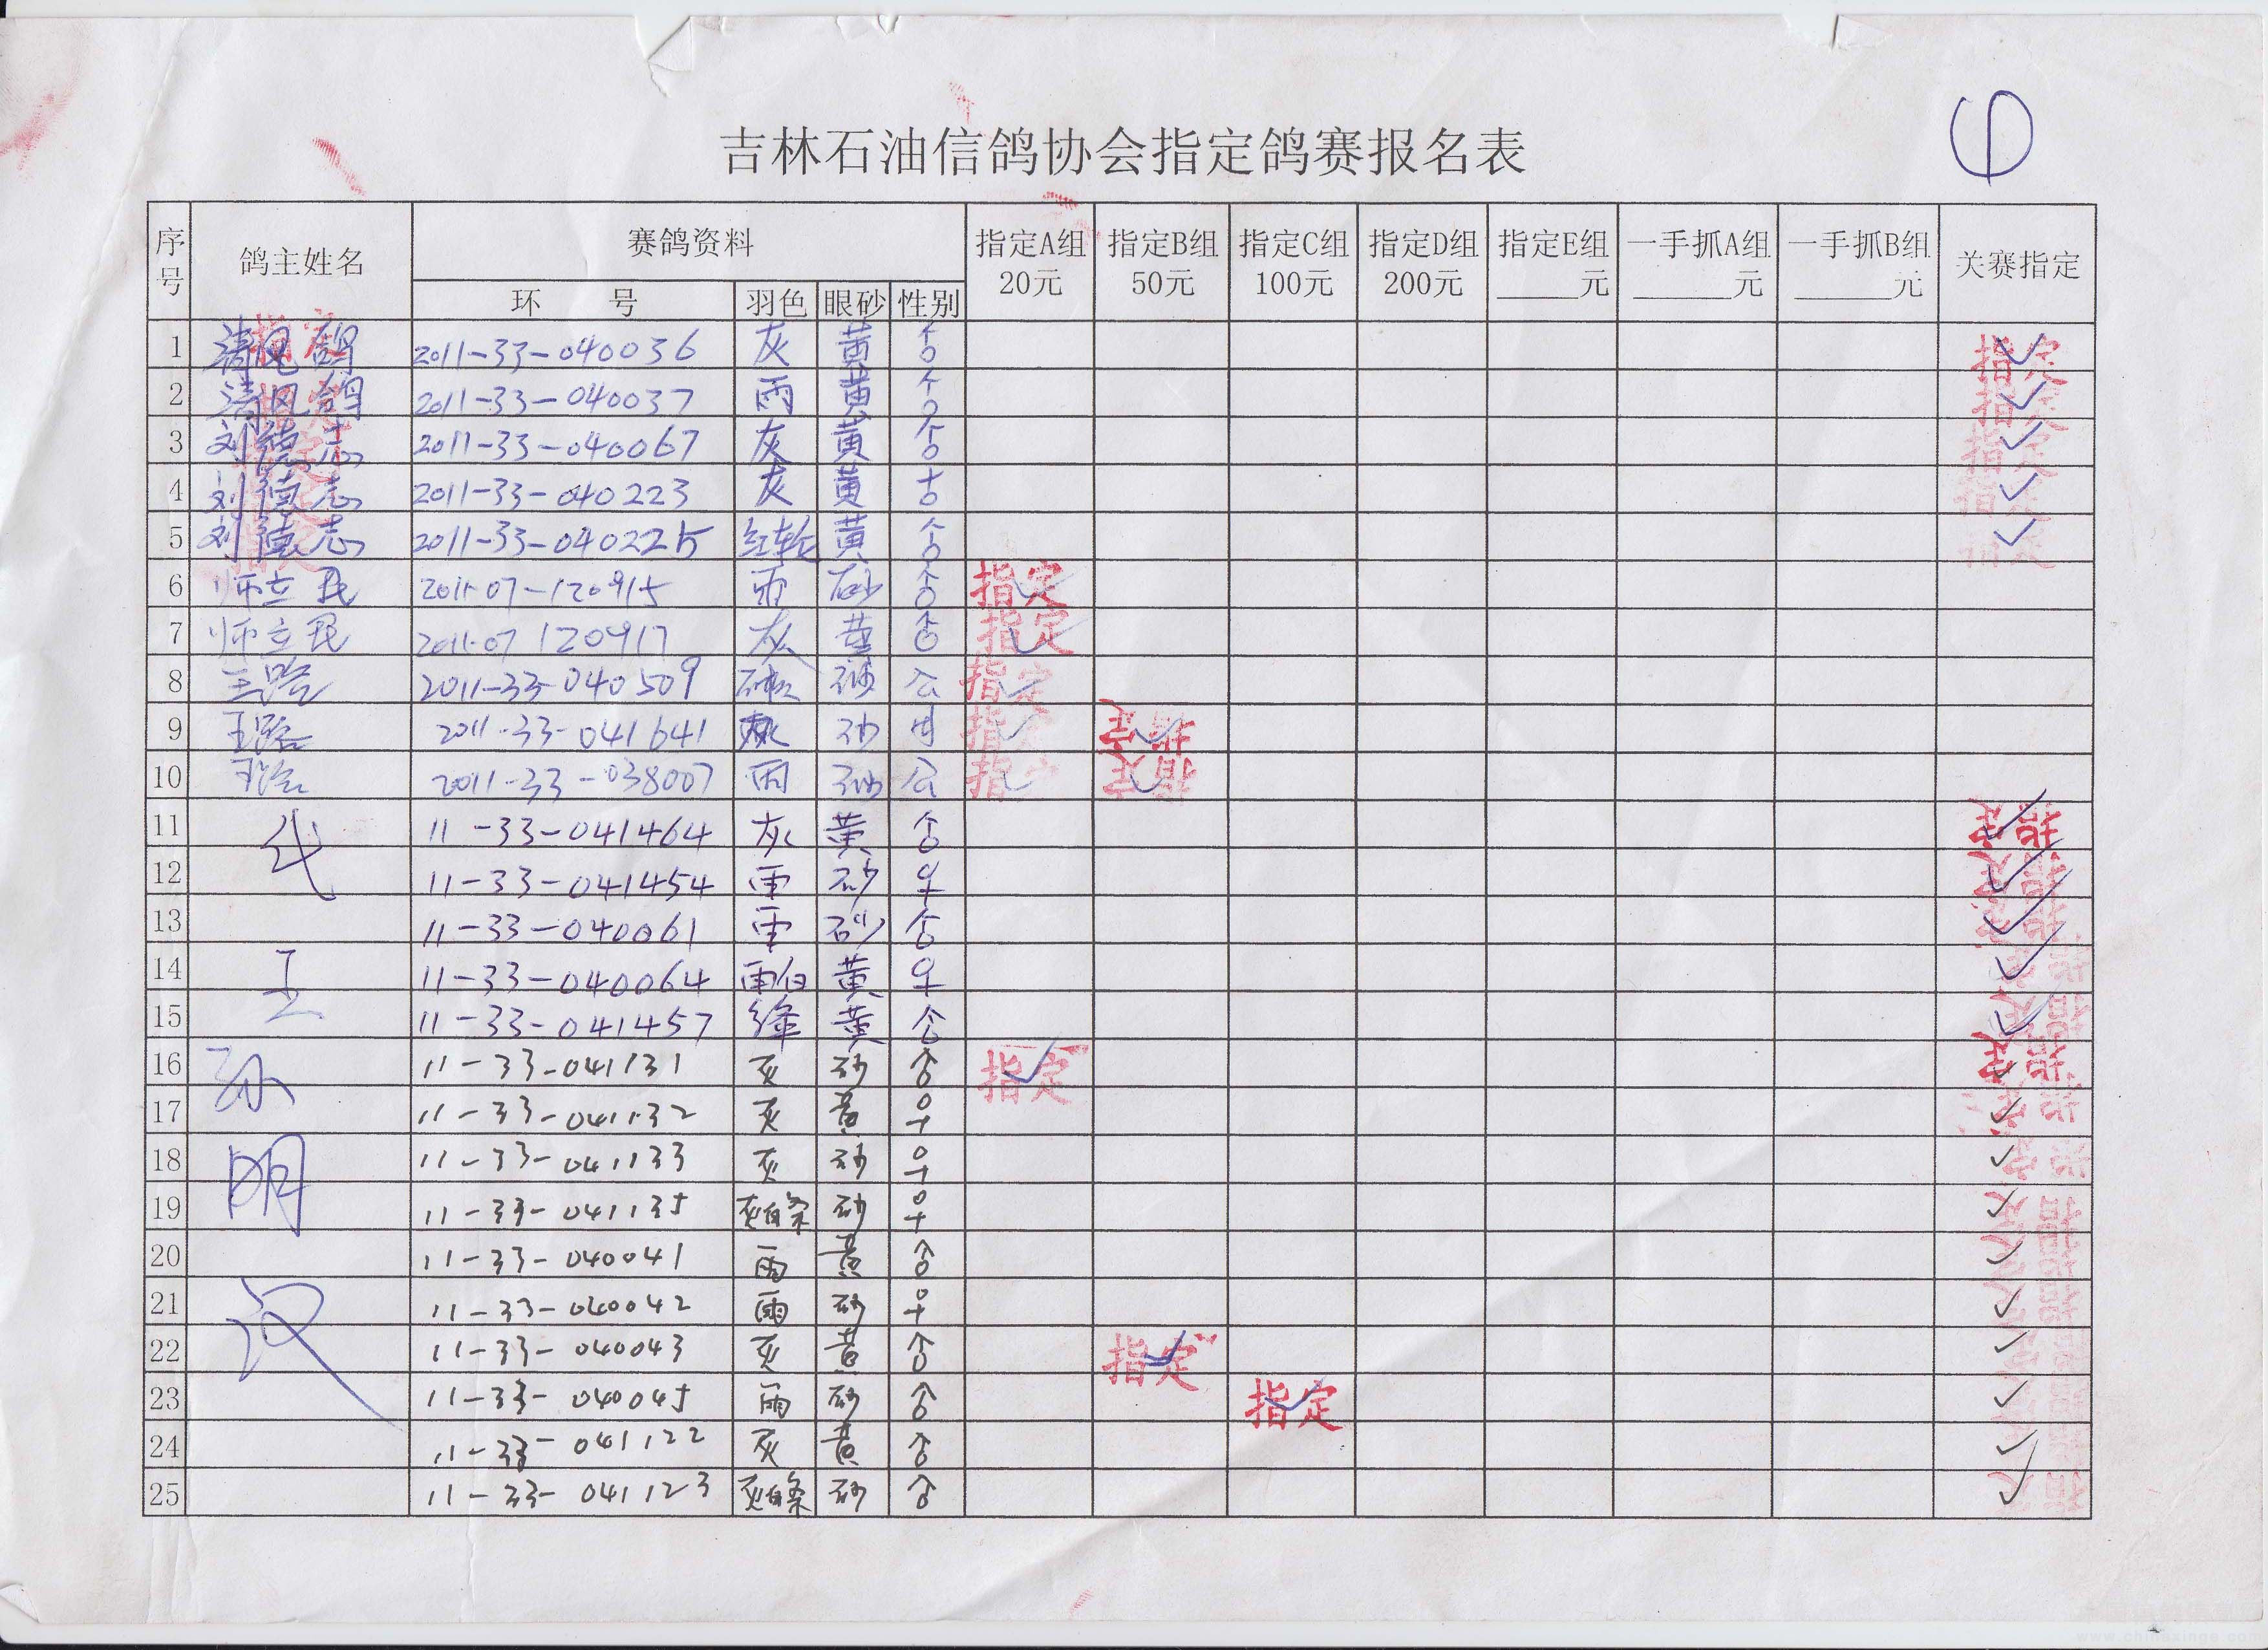 ①
吉林石油信鸽协会指定鸽赛报名表
序号 鸽主姓名 赛鸽资料 指定A组 20元 指定B组 50元 指定C组 100元 指定D组 200元 指定E组 ____元 一手抓A组 ____元 一手抓B组 ____元 关赛指定
环 号 羽色 眼砂 性别
1 清风鸽 2011-33-040036 灰 黄 ♂ 指定 ✓
2 清风鸽 2011-33-040037 雨 黄 ♂ 指定 ✓
3 刘德志 2011-33-040067 灰 黄 ♂ 指定 ✓
4 刘德志 2011-33-040223 灰 黄 指定 ✓
5 刘德志 2011-33-040225 红轮 黄 ♂ 指定 ✓
6 师立民 2011-07-120915 雨 砂 ♂ 指定 ✓
7 师立民 2011-07 120917 灰 黄 ♂ 指定 ✓
8 王路 2011-33-040509 砂 公 指定 ✓
9 王路 2011-33-041641 砂 指定 ✓ 指定 ✓
10 王路 2011-33-038007 雨 砂 公 指定 ✓ 指定 ✓
11 代 11-33-041464 灰 黄 ♂ 指定 ✓
12 11-33-041454 雨 砂 ♀ 指定 ✓
13 11-33-040061 雨 砂 ♂ 指定 ✓
14 王 11-33-040064 雨白 黄 ♀ 指定 ✓
15 11-33-041457 绛 黄 ♂ 指定 ✓
16 孙 11-33-041131 灰 砂 ♂ 指定 ✓ 指定 ✓
17 11-33-041132 灰 黄 ♀ 指定 ✓
18 明 11-33-041133 灰 砂 ♀ 指定 ✓
19 11-33-041135 灰白条 砂 ♀ 指定 ✓
20 11-33-040041 雨 黄 ♂ 指定 ✓
21 汉 11-33-040042 雨 砂 ♀ 指定 ✓
22 11-33-040043 灰 黄 ♂ 指定 ✓ 指定 ✓
23 11-33-040045 雨 砂 ♂ 指定 ✓ 指定 ✓
24 11-33-041122 灰 黄 ♂ 指定 ✓
25 11-33-041123 灰白条 砂 ♂ 指定 ✓